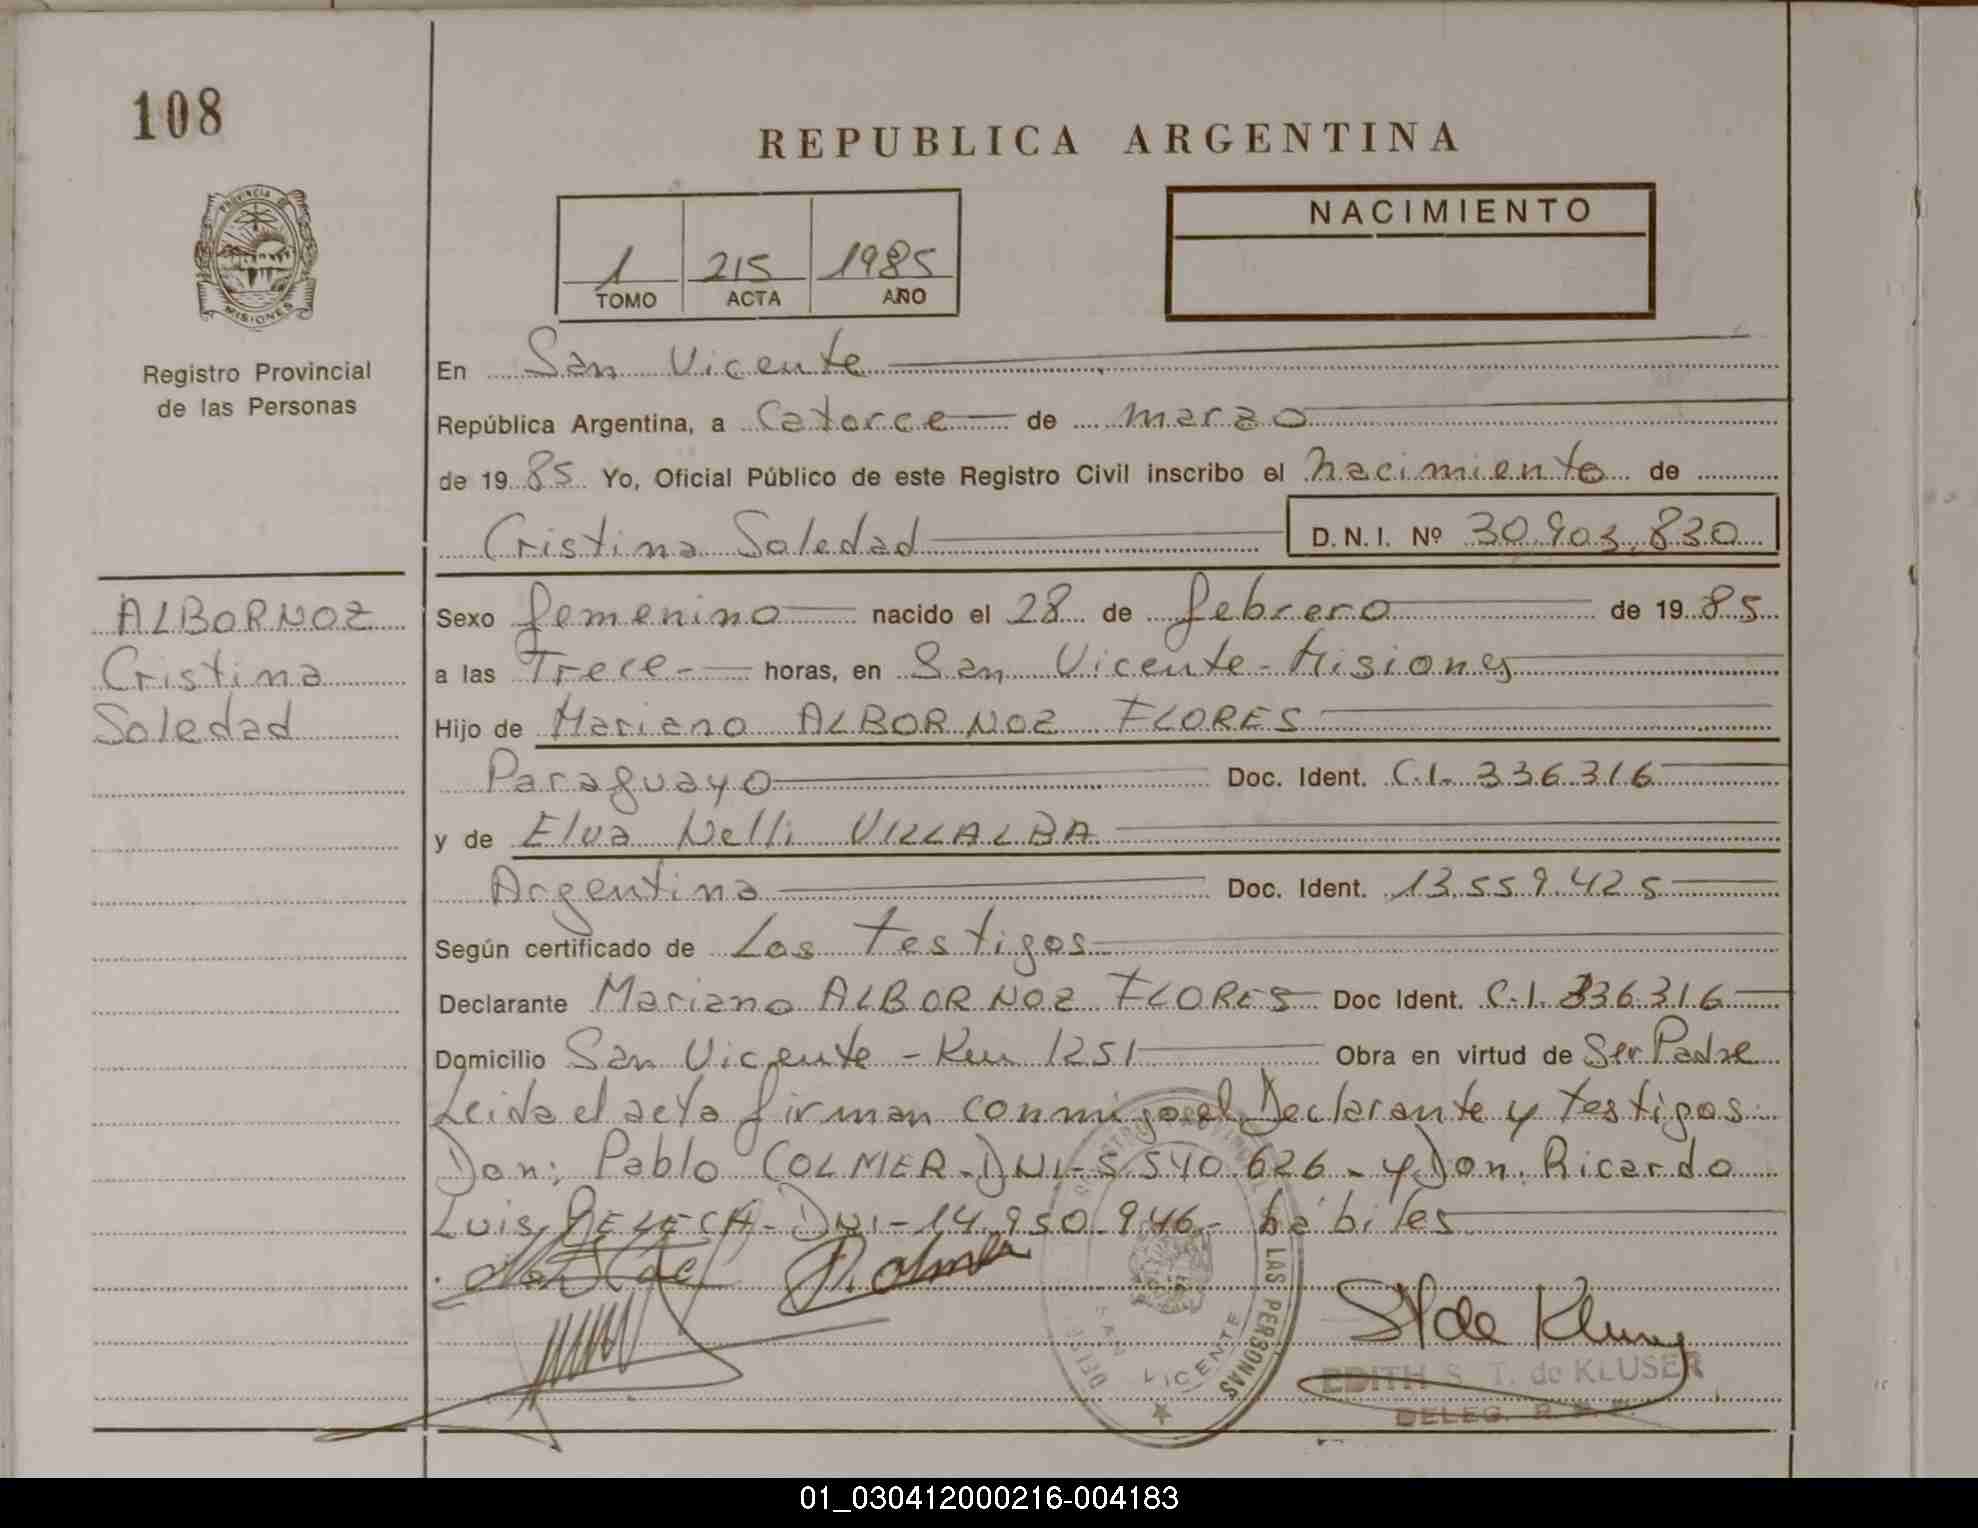 108
REPUBLICA ARGENTINA
PROVINCIA DE
MISIONES
1 215 1985
TOMO ACTA AÑO
NACIMIENTO
Registro Provincial
de las Personas
En San Vicente
República Argentina, a Catorce de marzo
de 1985 Yo, Oficial Público de este Registro Civil inscribo el nacimiento de
Cristina Soledad D.N.I. Nº 30.903.830
ALBORNOZ
Cristina
Soledad
Sexo femenino nacido el 28 de febrero de 1985
a las Trece- horas, en San Vicente-Misiones
Hijo de Mariano ALBORNOZ FLORES
Paraguayo Doc. Ident. C.I. 336316
y de Elva Nelli VILLALBA
Argentina Doc. Ident. 13.559.425
Según certificado de Los testigos
Declarante Mariano ALBORNOZ FLORES Doc Ident. C.I. 336316
Domicilio San Vicente - Km 1251 Obra en virtud de Ser Padre
Leida el acta firman conmigo el Declarante y testigos
Don; Pablo COLMER-DNI-5.540.626- y Don. Ricardo
Luis DNI-14.950.946- hábiles
LAS PERSONAS
SAN VICENTE
EDITH S. T. de KLUSER
DELEG.
01_030412000216-004183